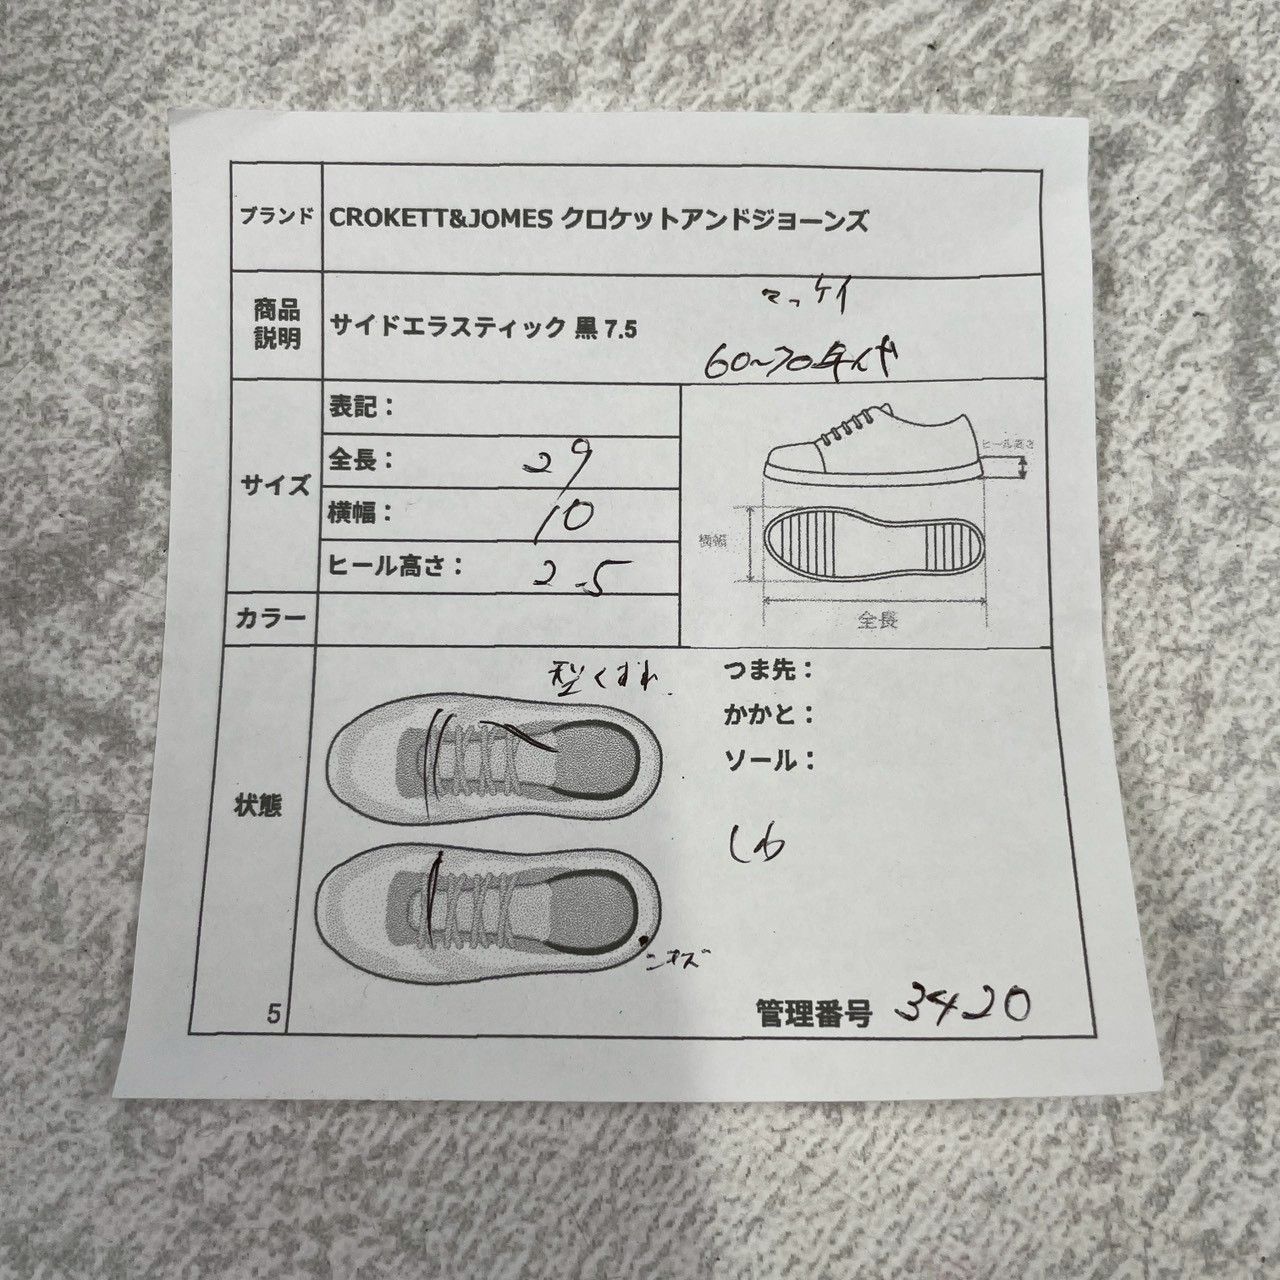 ブランド CROKETT&JOMES クロケットアンドジョーンズ
マッケイ
商品説明 サイドエラスティック 黒 7.5
60~70年代
サイズ
表記：
全長： 29
横幅： 10
ヒール高さ： 2.5
ヒール高さ
横幅
全長
カラー
状態
型くずれ
つま先：
かかと：
ソール：
しわ
キズ
5
管理番号 3420